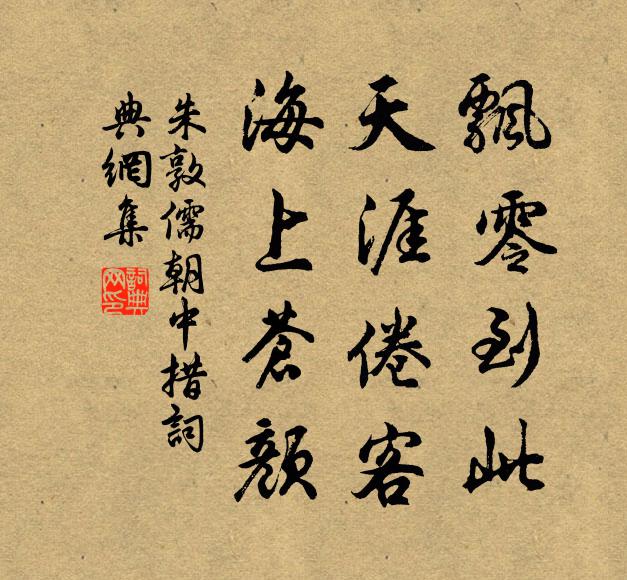 飄零到此
天涯倦客
海上蒼顏
朱敦儒朝中措詞
典網集
詞典网印